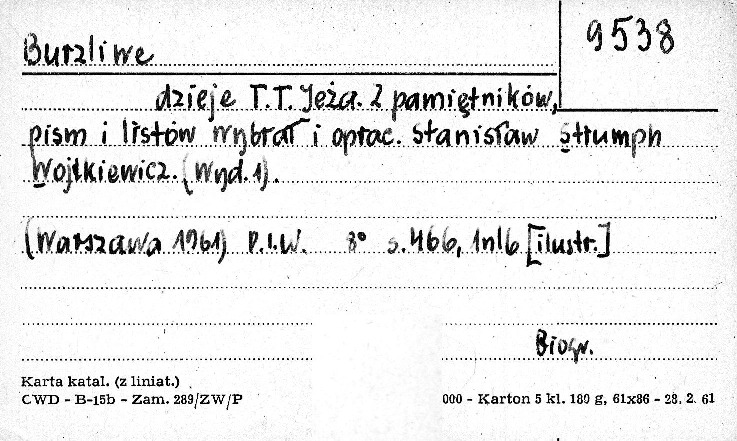 9538
Burzliwe
dzieje T.T. Jeża. Z pamiętników,
pism i listów wybrał i oprac. Stanisław Strumph
Wojtkiewicz. (Wyd. 1).
(Warszawa 1961) P.I.W. 8° s. 466, 1nlb [ilustr.]
Biogr.
Karta katal. (z liniat.)
CWD - B-15b - Zam. 289/ZW/P
000 - Karton 5 kl. 180 g, 61x86 - 28. 2. 61